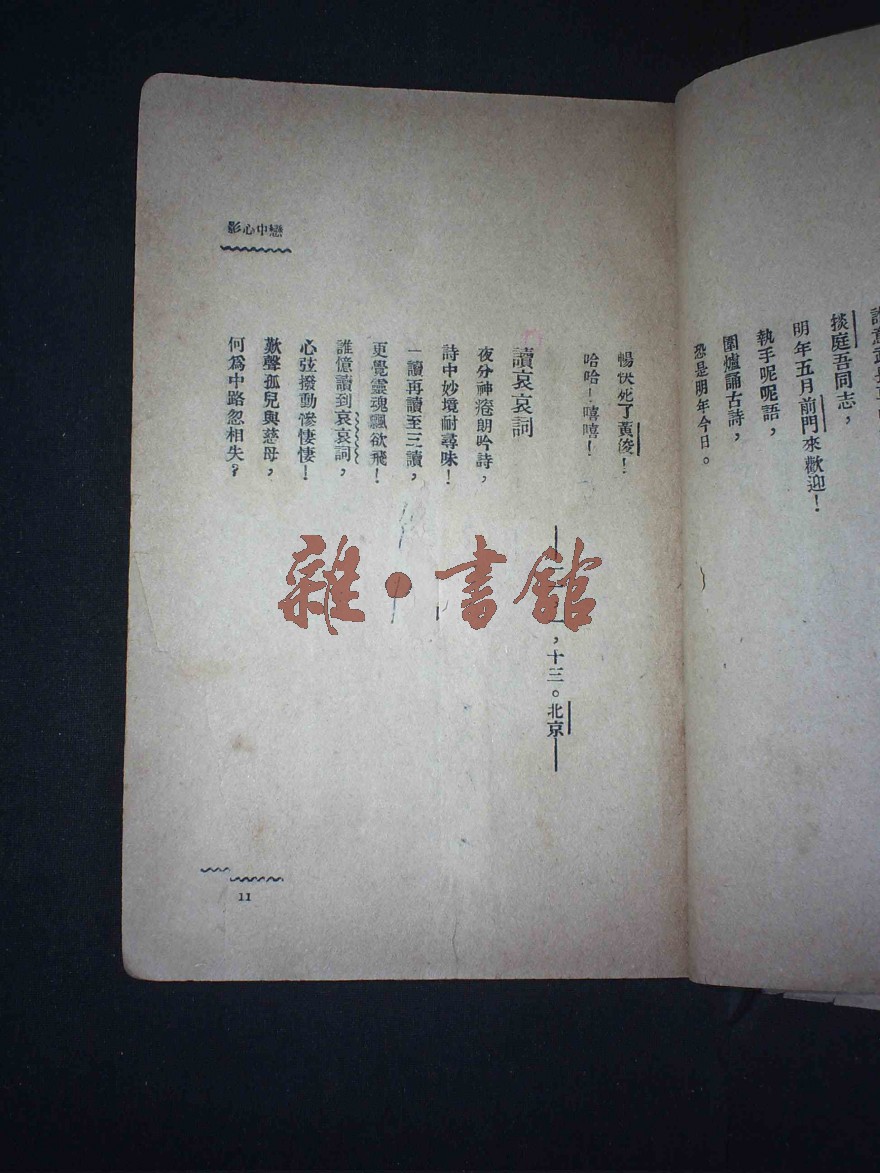 掞庭吾同志，
明年五月前門來歡迎！
執手呢呢語，
圍爐誦古詩，
恐是明年今日。
暢快死了黃浚！
哈哈！嘻嘻！
，十三。北京
讀哀哀詞
夜分神倦朗吟詩，
詩中妙境耐尋味！
一讀再讀至三讀，
更覺靈魂飄欲飛！
誰憶讀到哀哀詞，
心弦撥動慘悽悽！
歎聲孤兒與慈母，
何爲中路忽相失？
影心中戀
11
雜·書館